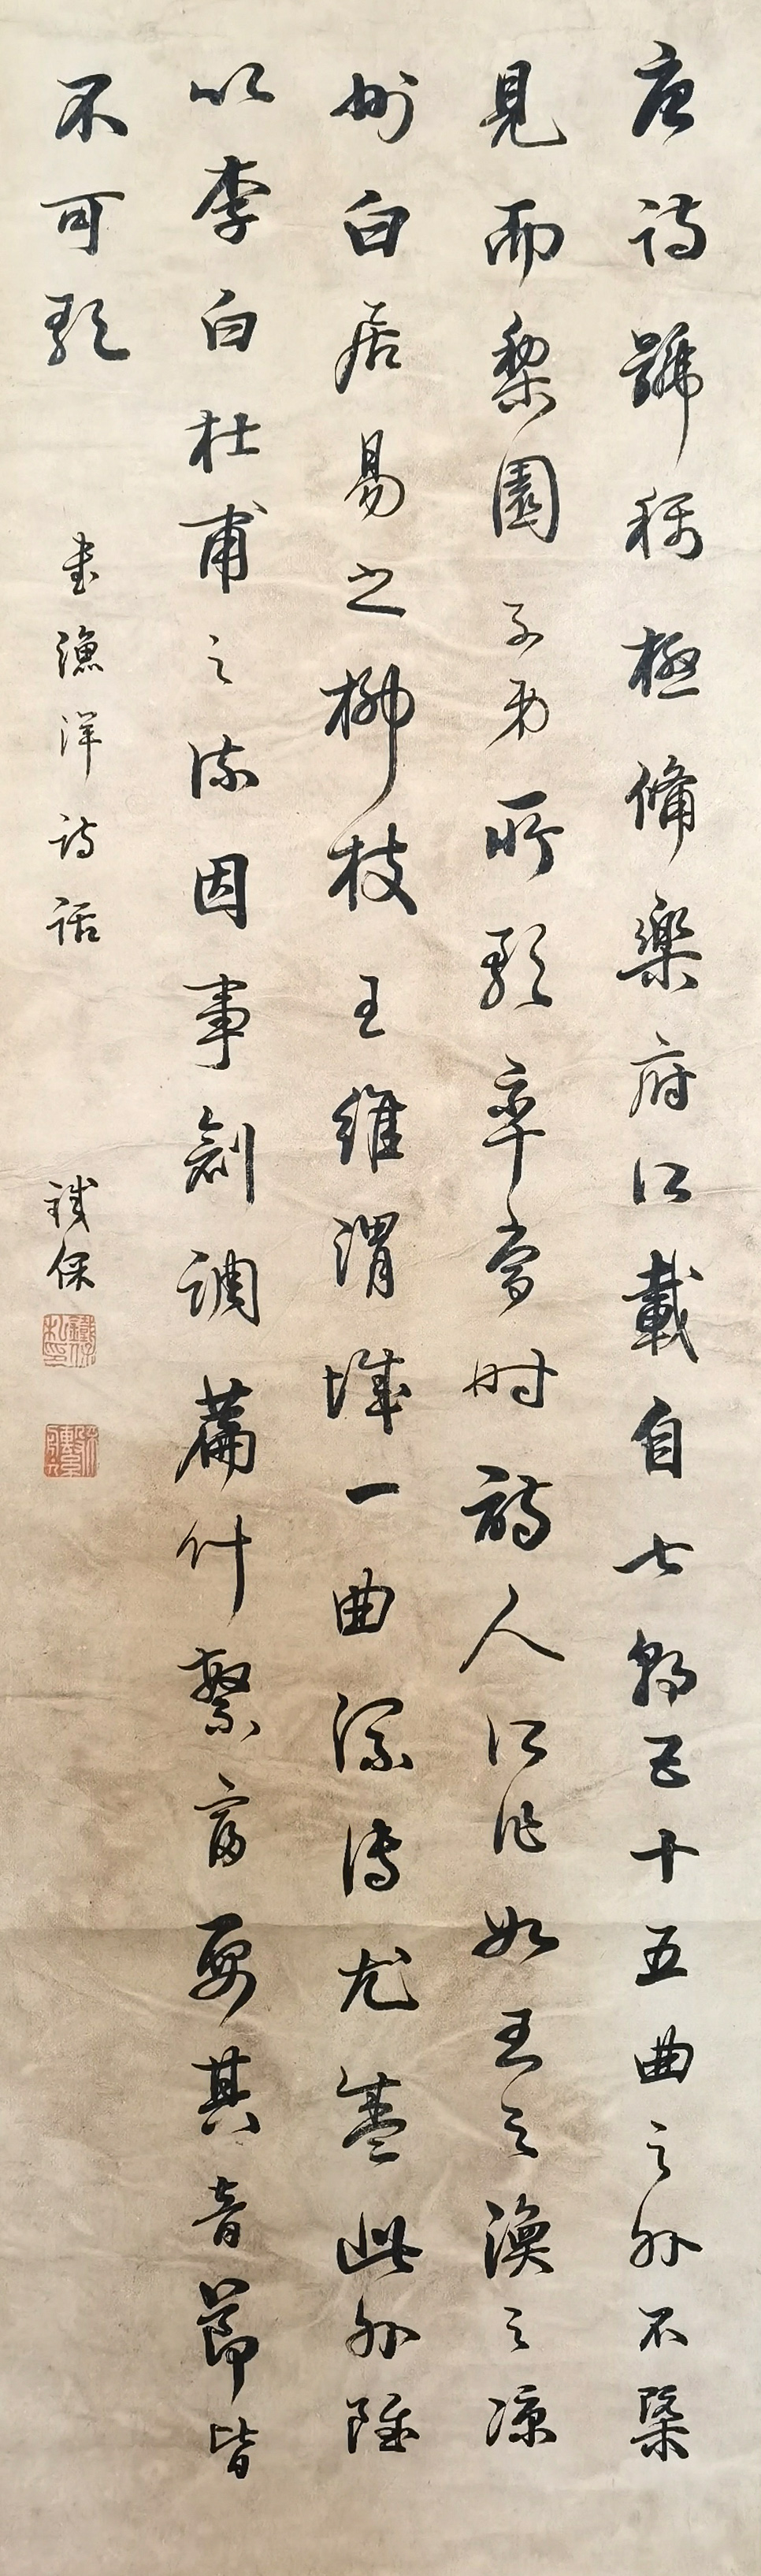 唐詩號稱極備樂府所載自七朝五十五曲之外不槩
見而梨園子弟所歌率當時詩人所作如王之渙之凉
州白居易之柳枝王維渭城一曲流傳尤盛此外雖
以李白杜甫之流因事創調篇什繁富要其音節皆
不可歌
書漁洋詩話
鐵保
鐵保私印